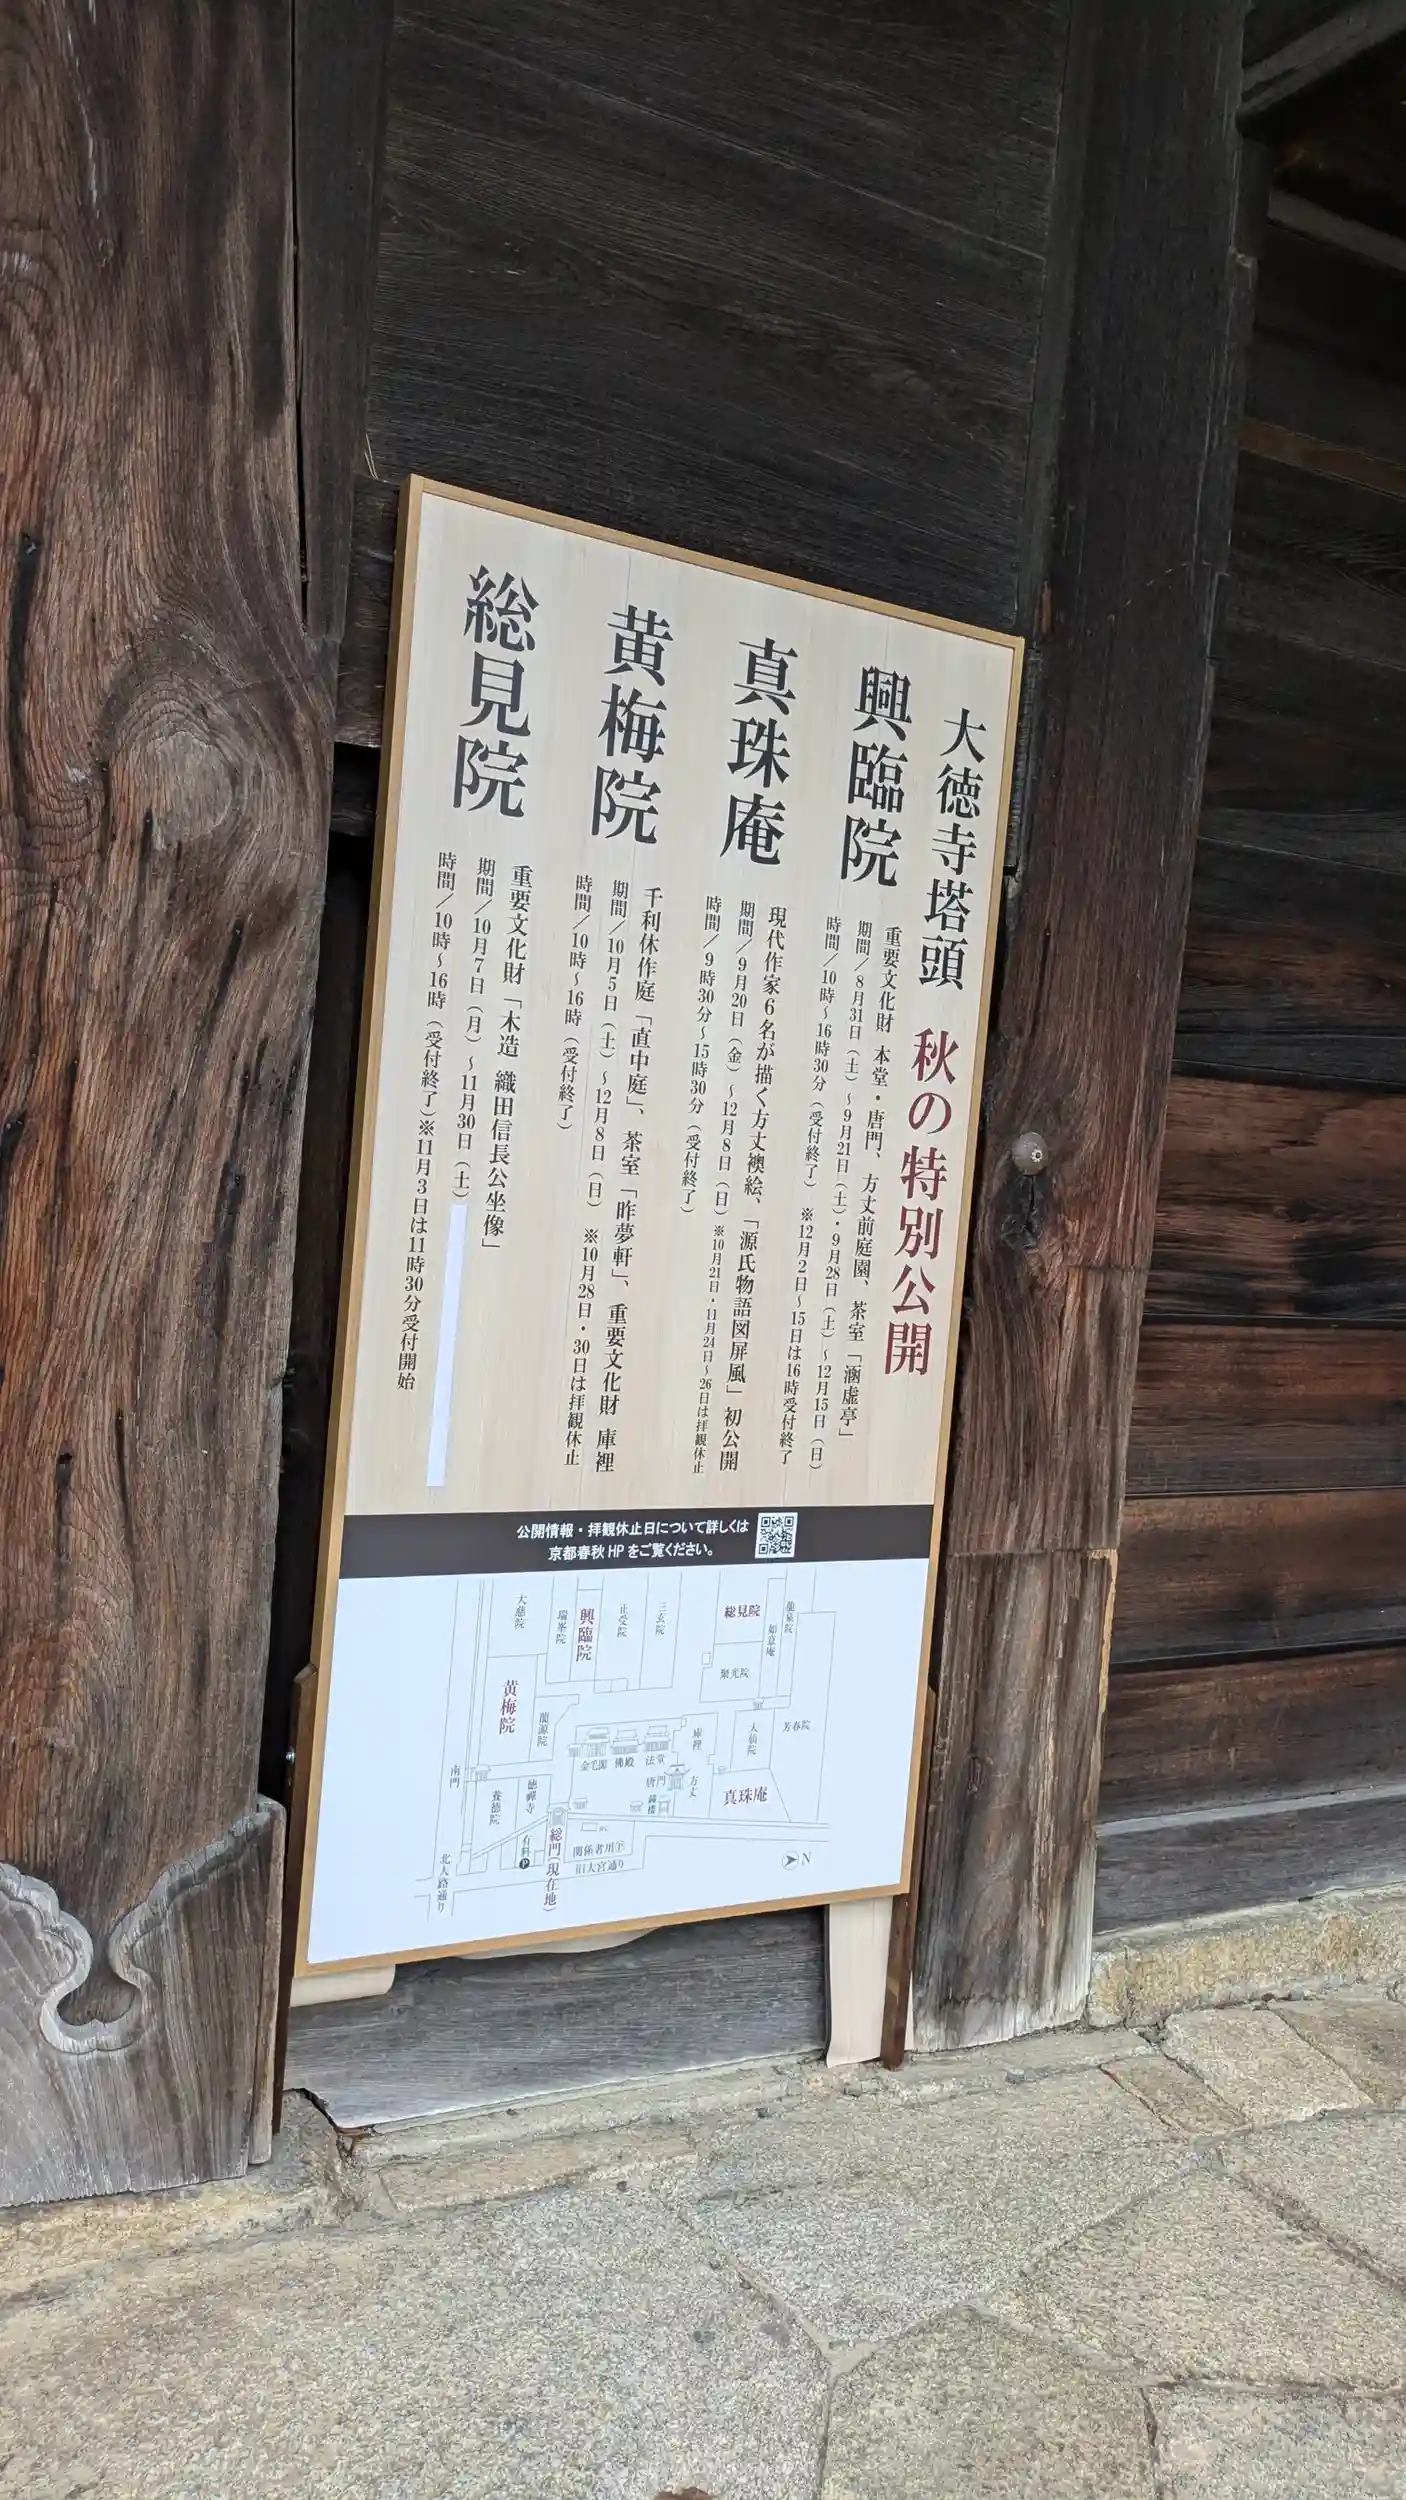 大徳寺塔頭 秋の特別公開
興臨院
重要文化財 本堂・唐門、方丈前庭園、茶室「涵虚亭」
期間／8月31日（土）～9月21日（土）・9月28日（土）～12月15日（日）
時間／10時～16時30分（受付終了） ※12月2日～15日は16時受付終了
真珠庵
現代作家6名が描く方丈襖絵、「源氏物語図屏風」初公開
期間／9月20日（金）～12月8日（日）※10月21日・11月24日～26日は拝観休止
時間／9時30分～15時30分（受付終了）
黄梅院
千利休作庭「直中庭」、茶室「昨夢軒」、重要文化財 庫裡
期間／10月5日（土）～12月8日（日） ※10月28日・30日は拝観休止
時間／10時～16時（受付終了）
総見院
重要文化財「木造 織田信長公坐像」
期間／10月7日（月）～11月30日（土）
時間／10時～16時（受付終了）※11月3日は11時30分受付開始
公開情報・拝観休止日について詳しくは
京都春秋HPをご覧ください。
大慈院
瑞峯院
興臨院
正受院
三玄院
総見院
如意庵
龍泉院
聚光院
黄梅院
龍源院
金毛閣
佛殿
法堂
庫裡
大仙院
芳春院
唐門
方丈
真珠庵
鐘楼
南門
養徳院
徳禅寺
有料P
総門（現在地）
WC
関係者用P
旧大宮通り
北大路通り
N